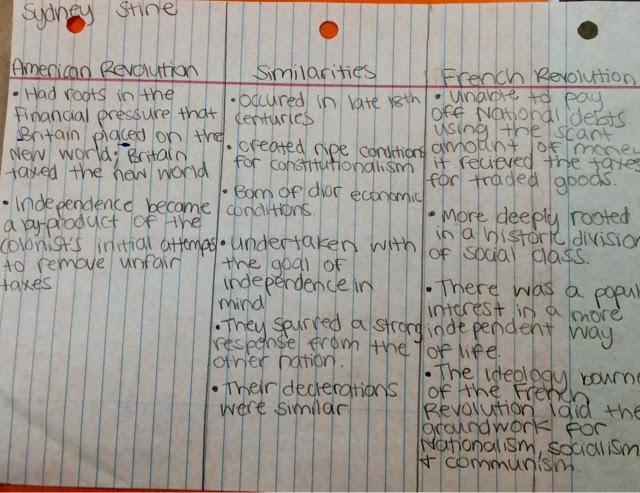 Sydney Stine
American Revolution
• Had roots in the
Financial pressure that
Britain placed on the
New world; Britain
taxed the new world
• Independence became
a by-product of the
colonist's initial attemps
to remove unfair
taxes
Similarities
• occured in late 18th
centuries
• created ripe conditions
for constitutionalism
• Born of dior economic
conditions.
• undertaken with
the goal of
independence in
mind
• They spurred a strong
response from the
other nation.
• Their declerations
were similar
French Revolution
• Unable to pay
off National debts
using the scant
amount of money
it recieved the taxes
for traded goods.
• More deeply rooted
in a historic division
of social class.
• There was a popul
interest in a more
independent way
of life.
• The ideology bourne
of the French
Revolution laid the
groundwork for
Nationalism, socialism
+ communism.